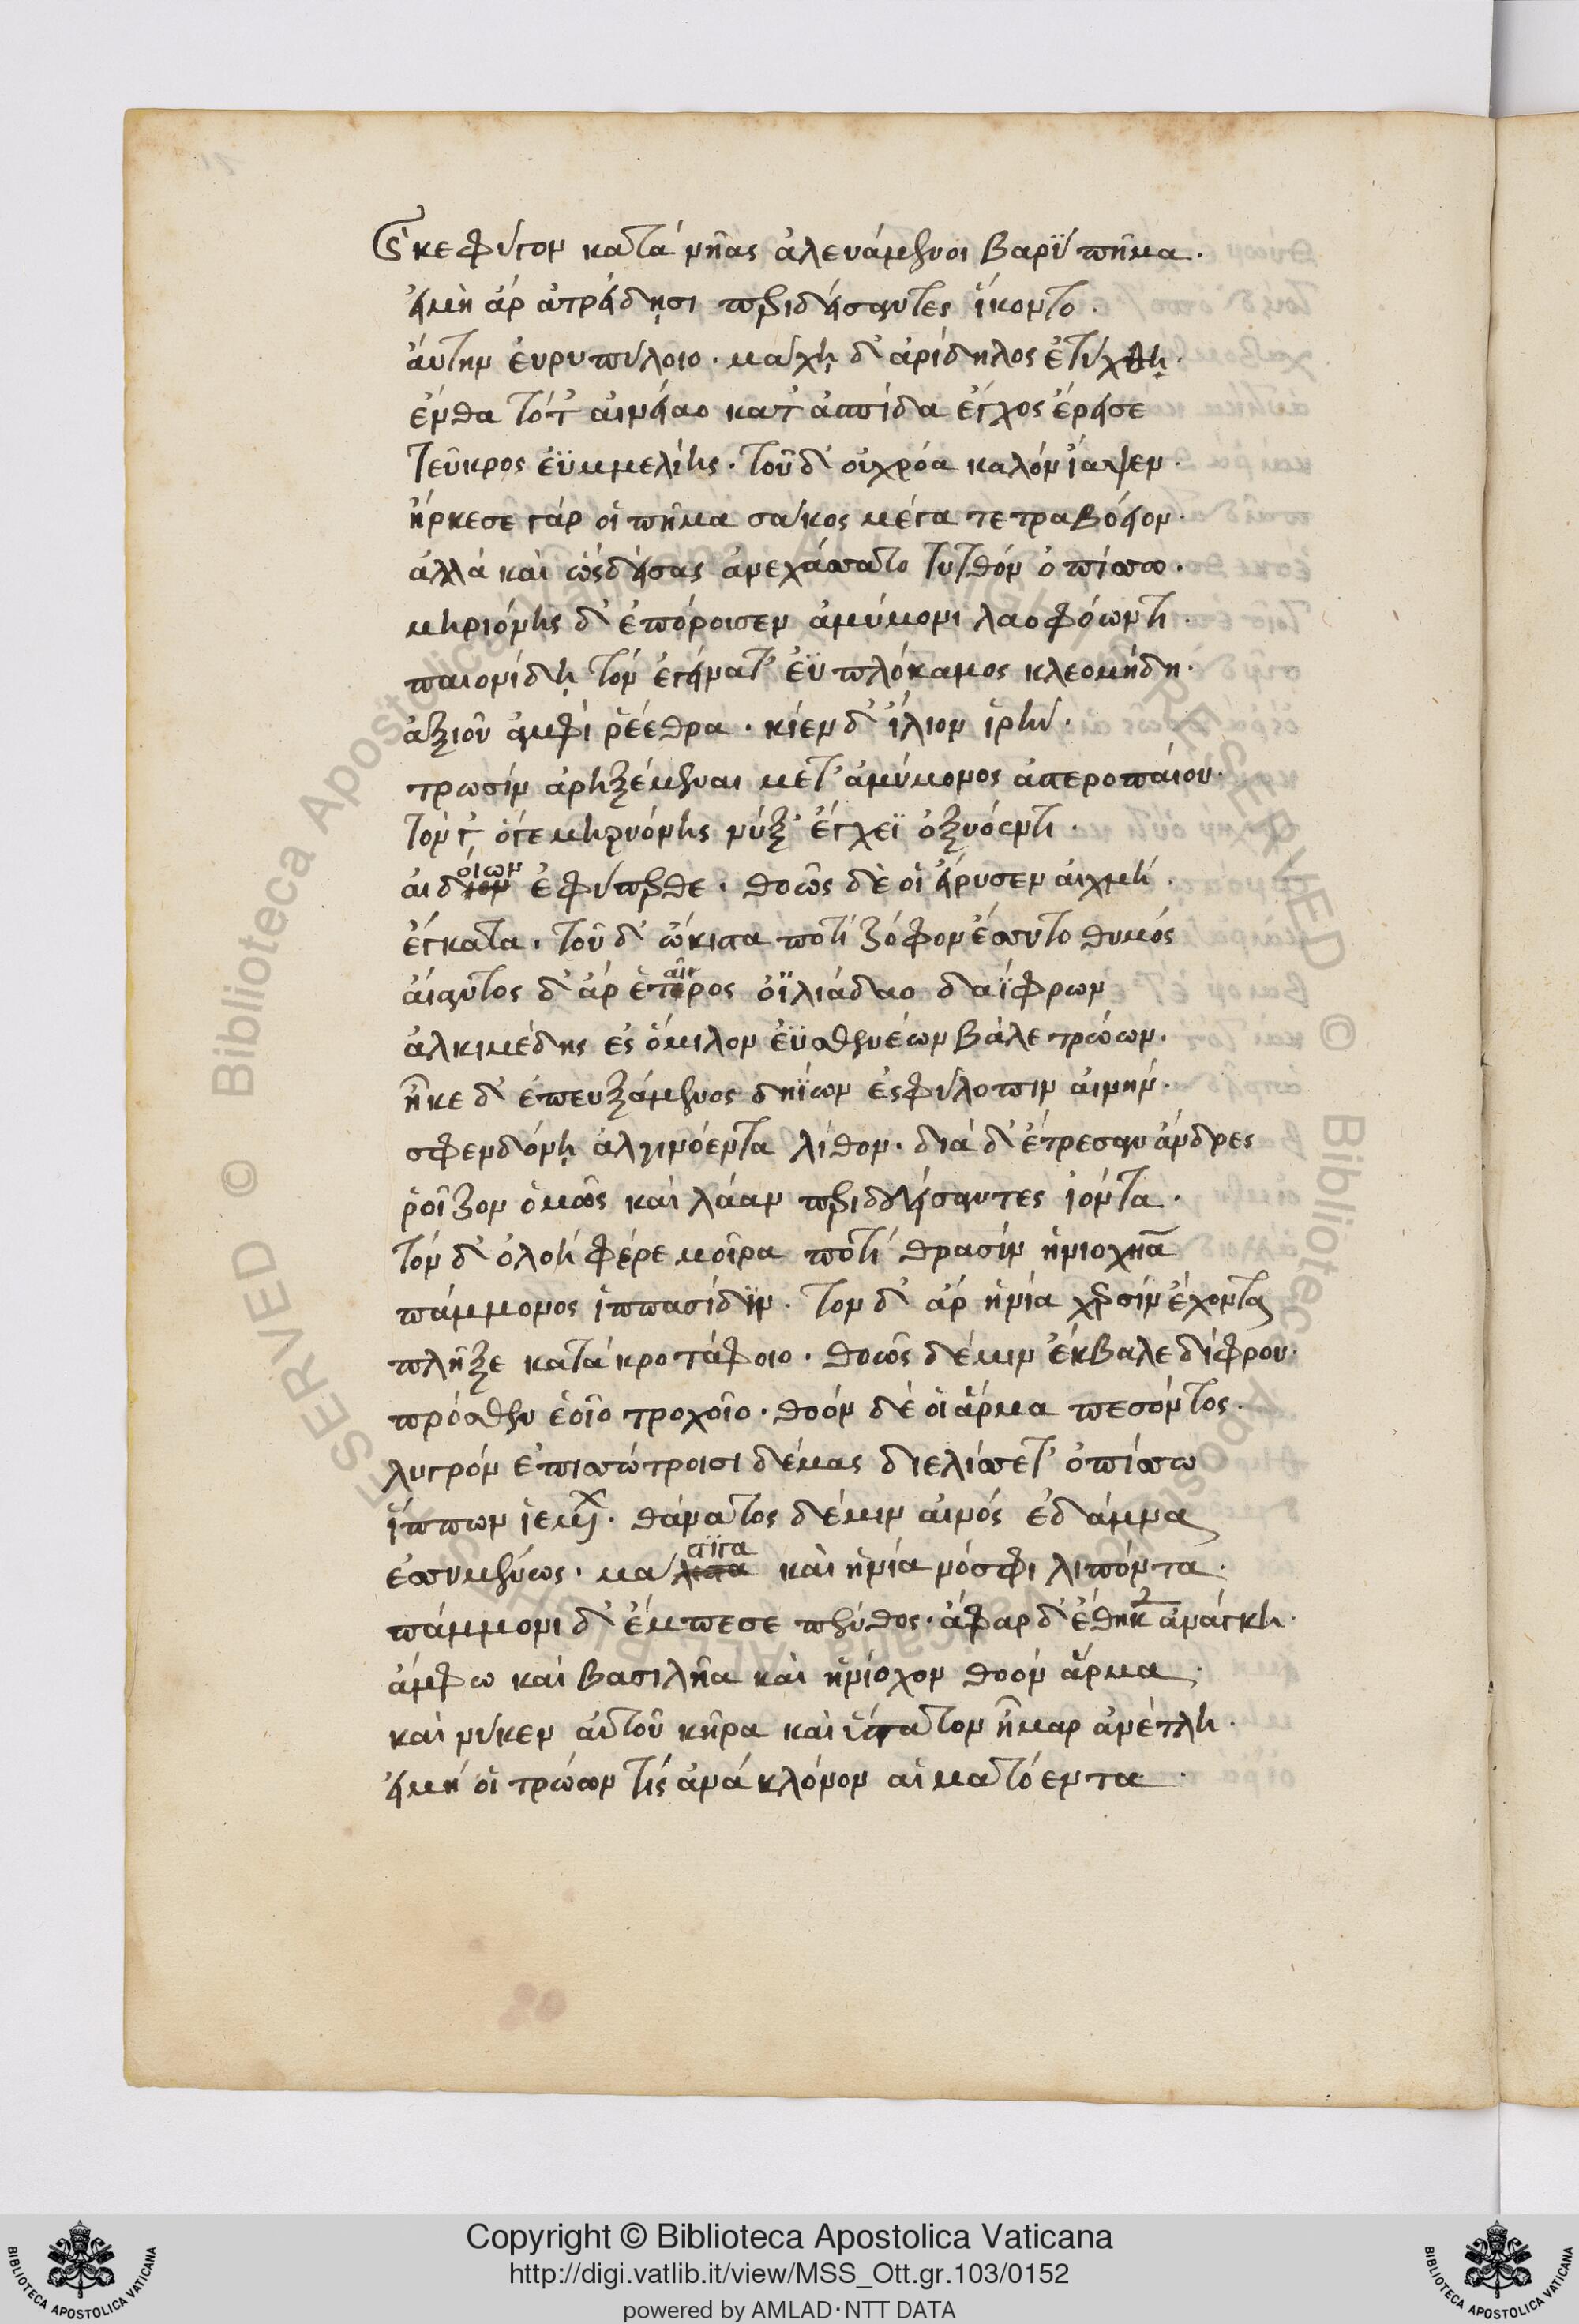 ἔκ κε φύγον κατὰ νῆας ἀλευάμενοι βαρὺ πῆμα.
εἰ μὴ ἄρ ἀτρείδῃσι περιδείσαντες ἵκοντο.
ἄντην ἐυρυπύλοιο. μάχη δ' ἀρίδηλος ἐτύχθη.
ἔνθα τότ' αἰνείαο κατ' ἀσπίδα ἔγχος ἔρεισε
τεῦκρος ἐϋμμελίης. τοῦ δ' οὐ χρόα καλὸν ἴαψεν.
ἤρκεσε γάρ οἱ πῆμα σάκος μέγα τετραβόειον.
ἀλλὰ καὶ ὡς δείσας ἀνεχάσσατο τυτθὸν ὀπίσσω.
μηριόνης δ' ἐπόρουσεν ἀμύμονι λαοφόωντι.
παιονίδῃ τὸν ἐγείνατ' ἐϋπλόκαμος κλεομήδη.
ἀξιοῦ ἀμφὶ ῥέεθρα. κίεν δ' ἴλιον ἱρήν.
τρωσὶν ἀρηξέμεναι μετ' ἀμύμονος ἀστεροπαίου.
τόν γ' ὅγε μηριόνης νύξ' ἔγχεϊ ὀξυόεντι.
αἰδοίων ἐφύπερθε. θοῶς δέ οἱ εἴρυσεν αἰχμὴ.
ἔγκατα. τοῦ δ' ὤκιστα ποτὶ ζόφον ἔσσυτο θυμός
αἴαντος δ' ἄρ ἑταῖρος ὀϊλιάδαο δαΐφρων
ἀλκιμέδης ἐς ὅμιλον ἐϋσθενέων βάλε τρώων.
ἧκε δ' ἐπευξάμενος δηΐων ἐς φύλοπιν αἰνήν.
σφενδόνῃ ἀλγινόεντα λίθον. διὰ δ' ἔτρεσαν ἄνδρες
ῥοῖζον ὁμῶς καὶ λᾶαν περιδδείσαντες ἰόντα.
τὸν δ' ὀλοὴ φέρε μοῖρα ποτὶ θρασὺν ἡνιοχῆα
πάμμονος ἱππασίδην. τὸν δ' ἄρ ἡνία χερσὶν ἔχοντα
πλῆξε κατὰ κροτάφοιο. θοῶς δέ μιν ἔκβαλε δίφρου.
πρόσθεν ἑοῖο τροχοῖο. θοὸν δέ οἱ ἅρμα πεσόντος.
λυγρὸν ἐπισσώτροισι δέμας διελίσσετ' ὀπίσσω
ἵππων ἱεμένων. θάνατος δέ μιν αἰνὸς ἐδάμνα
ἐσσυμένως. μάστιγα καὶ ἡνία νόσφι λιπόντα.
πάμμονι δ' ἔμπεσε πένθος. ἄφαρ δ' ἔθηκεν ἀνάγκη.
ἄμφω καὶ βασιλῆα καὶ ἡνίοχον θοὸν ἅρμα.
καί νύ κεν αὐτοῦ κῆρα καὶ ὕστατον ἦμαρ ἀνέτλη.
εἰ μή οἱ τρώων τὶς ἀνὰ κλόνον αἱματόεντα.
Copyright © Biblioteca Apostolica Vaticana
http://digi.vatlib.it/view/MSS_Ott.gr.103/0152
powered by AMLAD·NTT DATA